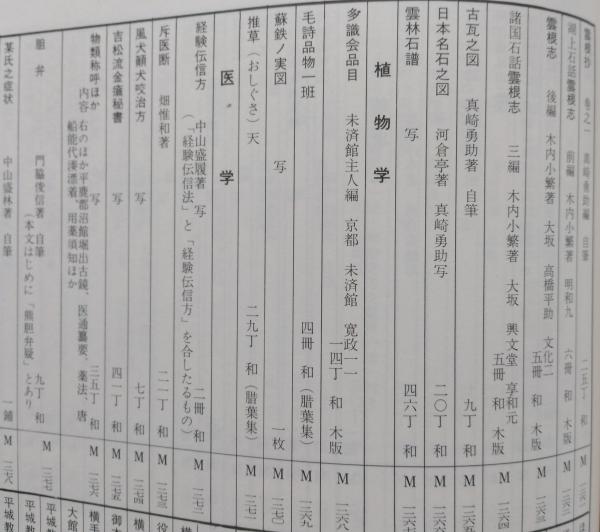 雲根抄 巻之一 真崎勇助編 自筆 二五丁 和 M
湖上石話雲根志 前編 木内小繁著 明和九 六冊 和 木版 M
雲根志 後編 木内小繁著 大坂 高橋平助 文化二 五冊 和 木版 M
諸国石話雲根志 三編 木内小繁著 大坂 興文堂 享和元 五冊 和 木版 M 二六四
古瓦之図 真崎勇助著 自筆 九丁 和 M 二六五
日本名石之図 河倉亭著 真崎勇助写 二〇丁 和 M 二六六
雲林石譜 写 四六丁 和 M 二六七
植物学
多識会品目 未済館主人編 京都 未済館 寛政一一 一四丁 和 木版 M 二六八
毛詩品物一班 四冊 和(腊葉集) M 二六九
蘇鉄ノ実図 写 一枚 M 二七〇
推草(おしぐさ)天 二九丁 和(腊葉集) M 二七一
医学
経験伝信方 中山盛履著 写 二冊 和 M 二七二
(「経験伝信法」と「経験伝信方」を合したるもの)
斥医断 畑惟和著 二二丁 和 M 二七三
風犬顛犬咬治方 写 七丁 和 M 二七四 役
吉松流金瘡秘書 写 四一丁 和 M 二七五 御
物類称呼ほか 写 三五丁 和 M 二七六 横手
内容 右のほか平鹿郡沼館堀出古鏡、医通纂要、薬法、唐船能代湊漂着、用薬須知ほか 大館
胆弁 門脇俊信著 自筆 九丁 和 M 二七七 平城
(本文はじめに「熊胆弁疑」とあり)
某氏之症状 中山盛林著 自筆 一鋪 M 二七八 平城教